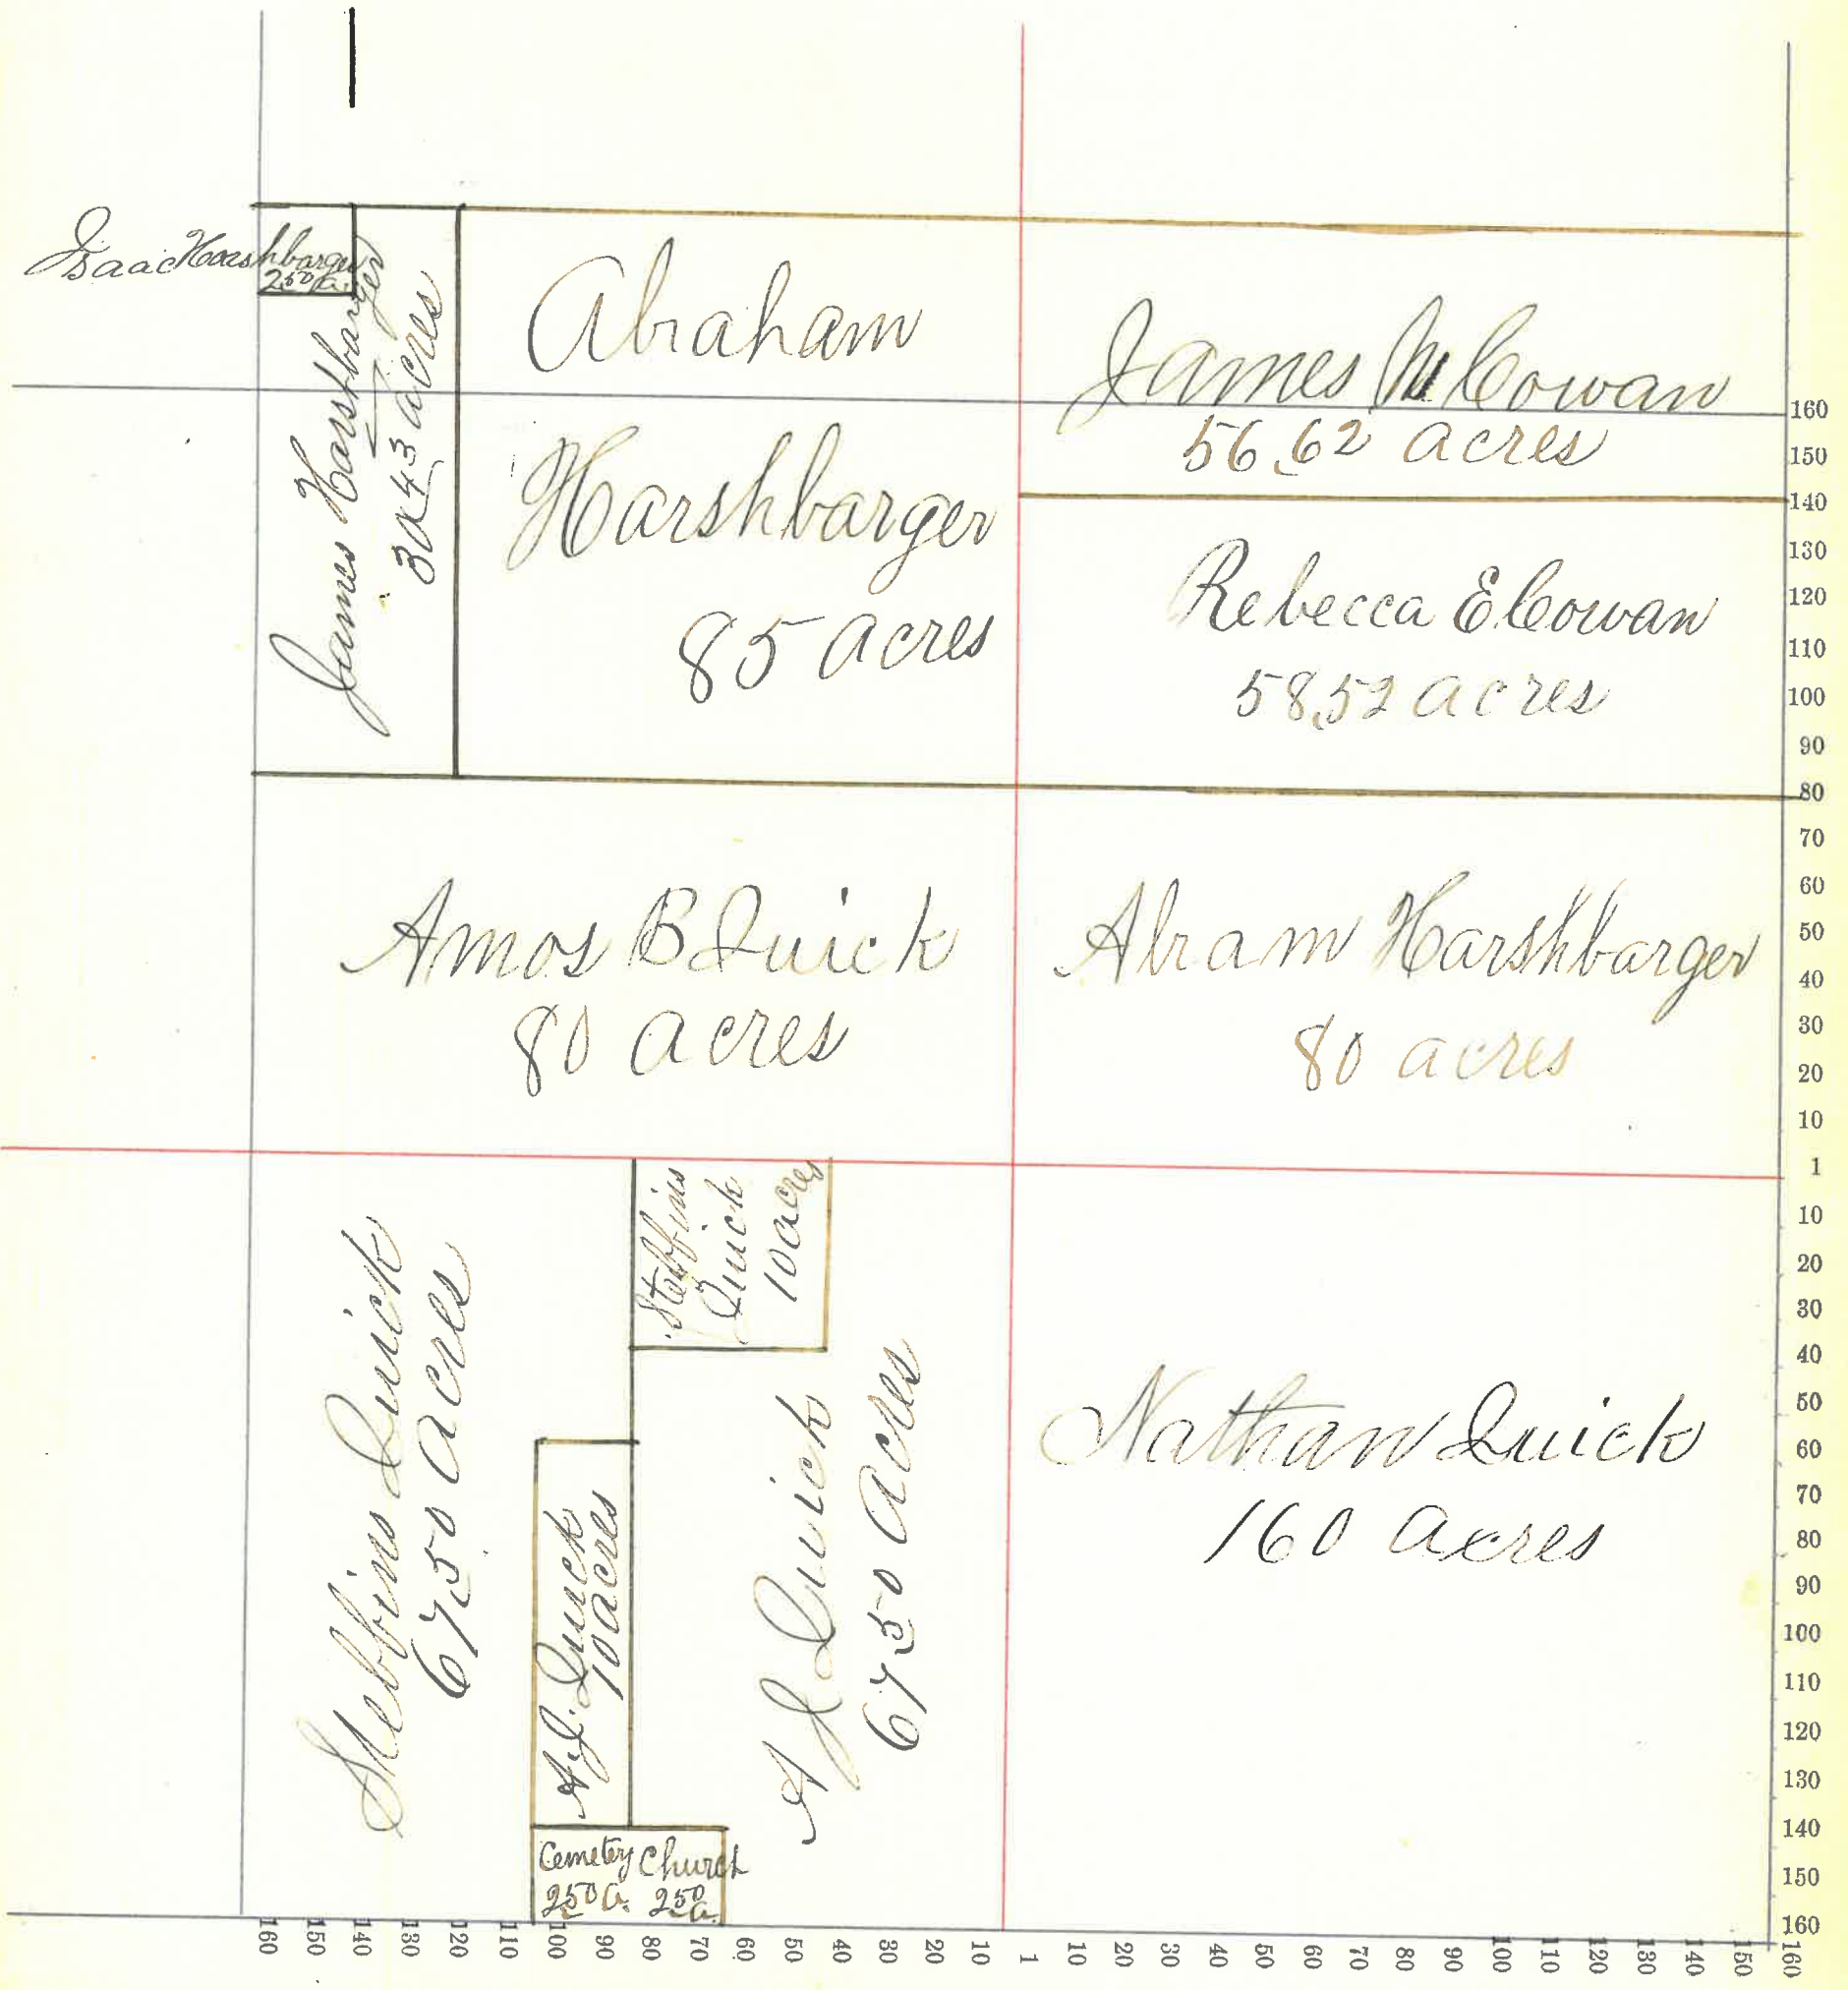 Isaac Harshbarger
2.50 a.
James Harshbarger
30.43 acres
Abraham
Harshbarger
85 acres
James M Cowan
56.62 acres
Rebecca E Cowan
58.52 acres
Amos B Quick
80 acres
Abram Harshbarger
80 acres
Stebbins Quick
67.50 acres
Stebbins
Quick
10 acres
A. J. Quick
10 acres
A J Quick
67.50 acres
Nathan Quick
160 acres
Cemetery Church
2.50 a. 2.50 a.
160
150
140
130
120
110
100
90
80
70
60
50
40
30
20
10
1
10
20
30
40
50
60
70
80
90
100
110
120
130
140
150
160
160 150 140 130 120 110 100 90 80 70 60 50 40 30 20 10 1 10 20 30 40 50 60 70 80 90 100 110 120 130 140 150 160